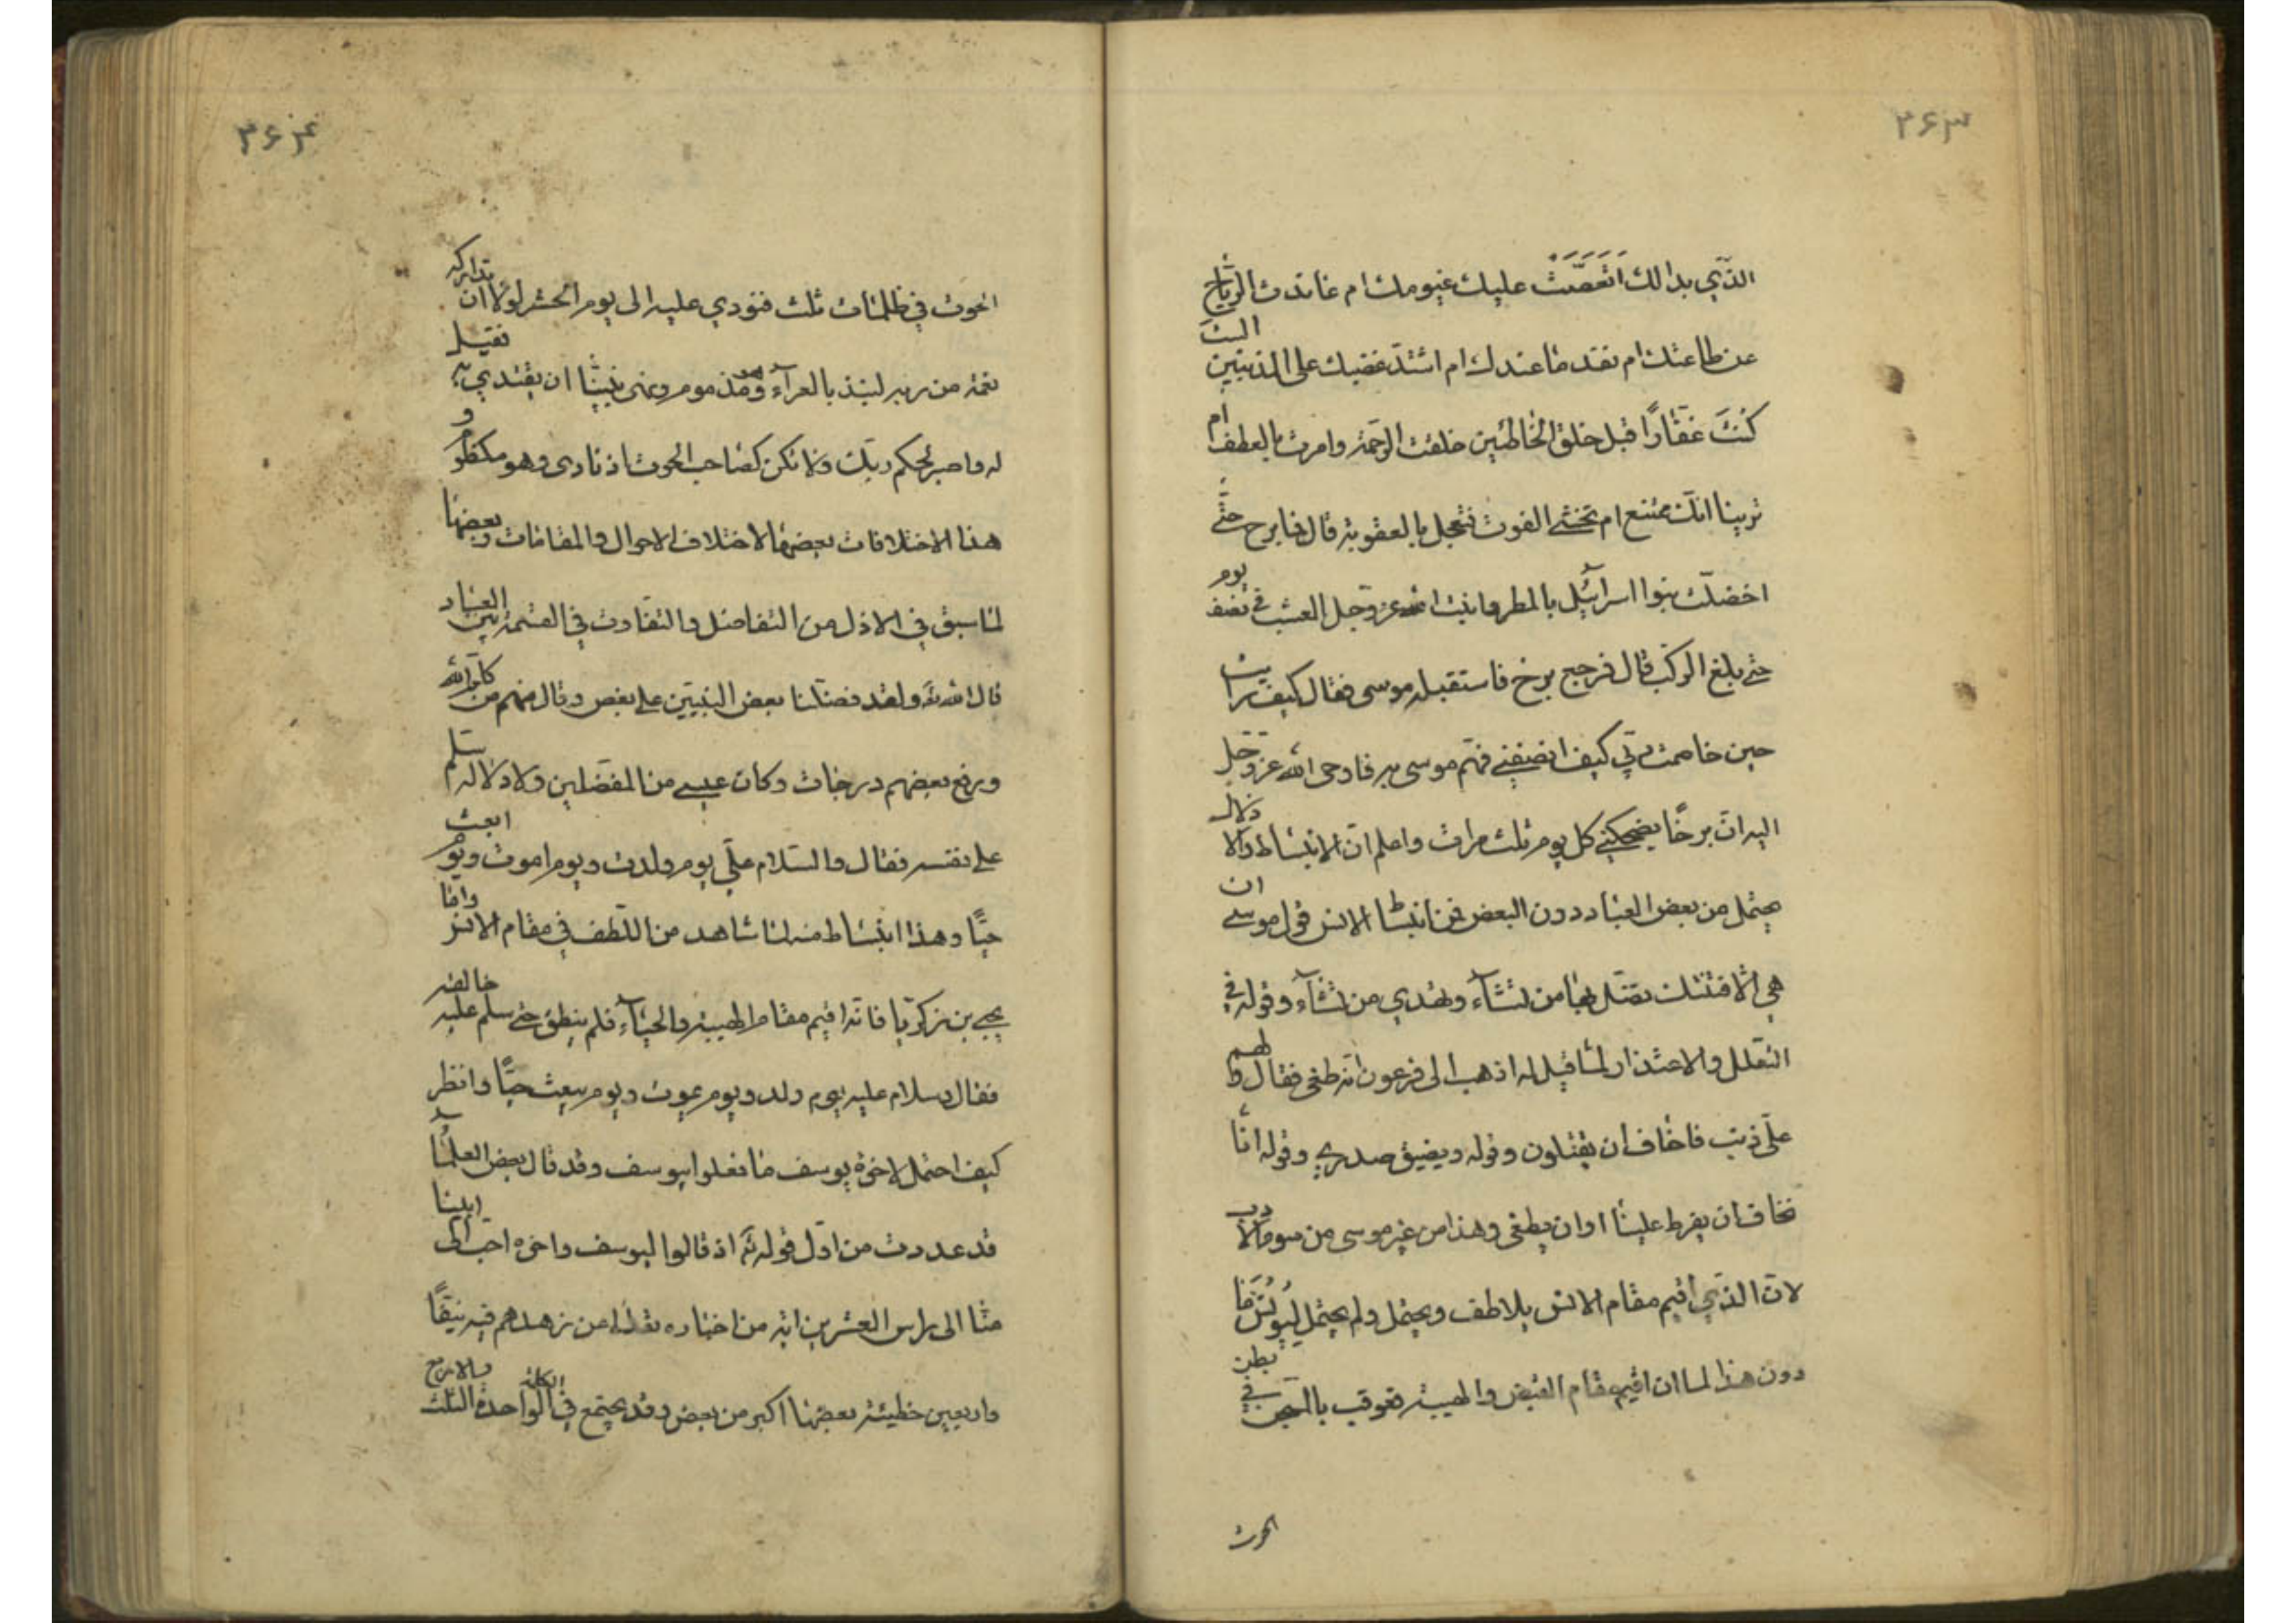 ۲۶۳
الذي بدا لك اتعصّت عليك غيومك ام عاندت الرياح
عن طاعتك ام نفد ما عندك ام اشتدّ غضبك على المذنبين الست
كُنتَ غفّارًا قبل خلق الخاطئين خلقت الرحمة وامرت بالعطف ام
ترينا انّك ممتنع ام تخشى الفوت فتعجل بالعقوبة قال فما برح حتّى
اخضلّت بنوا اسرآئيل بالمطر وانبت الله عز وجل العشب في نصف يوم
حتى بلغ الركب قال فرجع برخ فاستقبله موسى فقال كيف رايت
حين خاصمت ربّي كيف انصفني فهمّ موسى به فاوحى الله عز وجل
اليه انّ برخًا يضحكني كل يوم ثلث مرات واعلم انّ الانبساط والادلال
يحتمل من بعض العباد دون البعض فمن انبساط الانس قول موسى ان
هي الّا فتنتك تضل بها من تشآء وتهدي من تشآء وقوله في
التعلل والاعتذار لمّا قيل له اذهب الى فرعون انه طغى فقال ولهم
علّي ذنب فاخاف ان يقتلون وقوله ويضيق صدري وقوله انّا
نخاف ان يفرط علينا او ان يطغى وهذا من غير موسى من سوء الادب
لانّ الذي اقيم مقام الانس يلاطف ويحتمل ولم يحتمل ليُونُسَ مَا
دون هذا لما ان اقيم مقام القبض والهيبة فعوقب بالسجن في بطن
الحوت
۲۶۴
الحوت في ظلمات ثلث فنودي عليه الى يوم الحشر لولا ان تداركه
نعمة من ربه لنبذ بالعرآء وهو مذموم ونهى نبينا ان يقتدي به فقيل
له واصبر لحكم ربّك ولا تكن كصاحب الحوت اذ نادى وهو مكظوم و
هذا الاختلافات بعضها لاختلاف الاحوال والمقامات وبعضها
لما سبق في الازل من التفاضل والتفاوت في القسمة بين العباد
قال الله تع ولقد فضّلنا بعض النبيّين على بعض وقال منهم من كلّم الله
ورفع بعضهم درجات وكان عيسى من المفضلين ولادلاله سلم
على نفسه فقال والسلام علّي يوم ولدت ويوم اموت ويوم ابعث
حيًّا وهذا انبساط منه لما شاهد من اللطف في مقام الانس وامّا
يحيى بن زكريّا فانّه اقيم مقام الهيبة والحيآء فلم ينطق حتى سلم عليه خالقه
فقال وسلام عليه يوم ولد ويوم يموت ويوم يبعث حيًّا وانظر
كيف احتمل لاخوة يوسف ما فعلوا بيوسف وقد قال بعض العلمآء
قد عددت من اوّل قوله تع اذ قالوا ليوسف واخوه احب الى ابينا
منا الى راس العشرين اية من اخباره تعالى من زهدهم فيه نيّفًا
واربعين خطيئة بعضها اكبر من بعض وقد يجتمع في الكلمة الواحدة الثلث والاربع